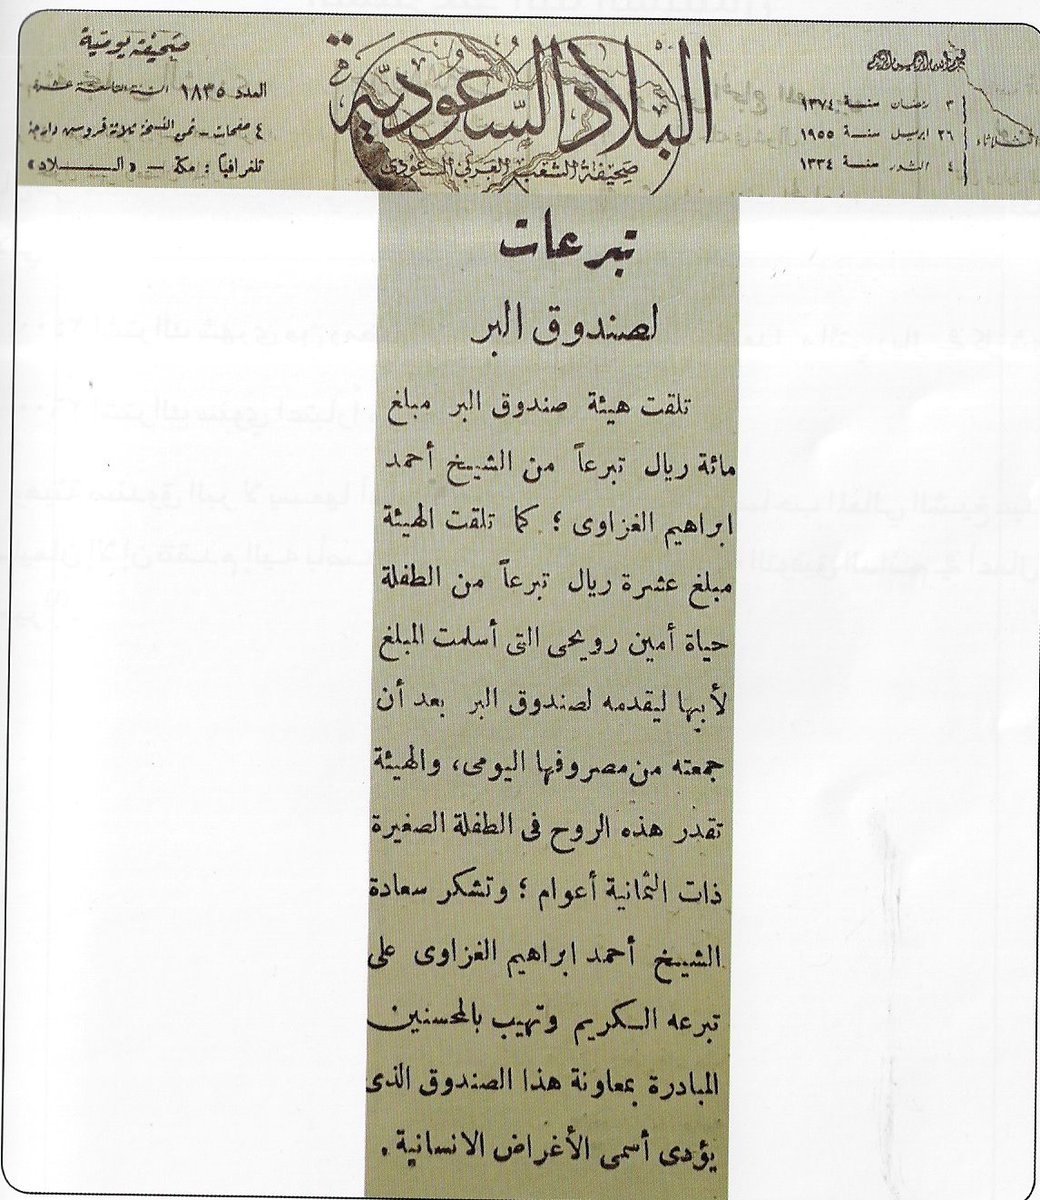 بسم الله الرحمن الرحيم
الثلاثاء
٣ رمضان سنة ١٣٧٤
٢٦ ابريل سنة ١٩٥٥
٤ الثور سنة ١٣٣٤
البلاد السعودية
صحيفة الشعب العربي السعودى
صحيفة يومية
العدد ١٨٣٥ السنة التاسعة عشرة
٤ صفحات - ثمن النسخة ثلاثة قروش دارجة
تلغرافيا : مكة - «البلاد»
تبرعات
لصندوق البر
تلقت هيئة صندوق البر مبلغ
مائة ريال تبرعاً من الشيخ أحمد
ابراهيم الغزاوى ؛ كما تلقت الهيئة
مبلغ عشرة ريال تبرعاً من الطفلة
حياة أمين رويحى التى أسلمت المبلغ
لأبيها ليقدمه لصندوق البر بعد أن
جمعته من مصروفها اليومى، والهيئة
تقدر هذه الروح فى الطفلة الصغيرة
ذات الثمانية أعوام ؛ وتشكر سعادة
الشيخ أحمد ابراهيم الغزاوى على
تبرعه الكريم وتهيب بالمحسنين
المبادرة بمعاونة هذا الصندوق الذى
يؤدى أسمى الأغراض الانسانية .